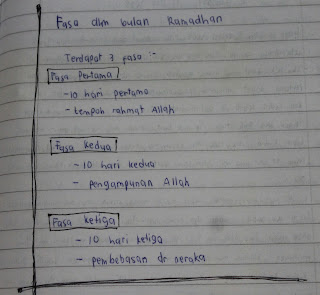 Fasa dlm bulan Ramadhan
Terdapat 3 fasa :-
Fasa Pertama
- 10 hari pertama
- tempoh rahmat Allah
Fasa kedua
- 10 hari kedua
- pengampunan Allah
Fasa ketiga
- 10 hari ketiga
- pembebasan dr neraka